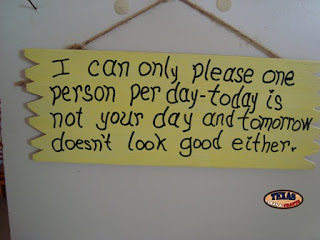 I can only please one
person per day-today is
not your day and tomorrow
doesn't look good either.
TEXAS
CRAFTS